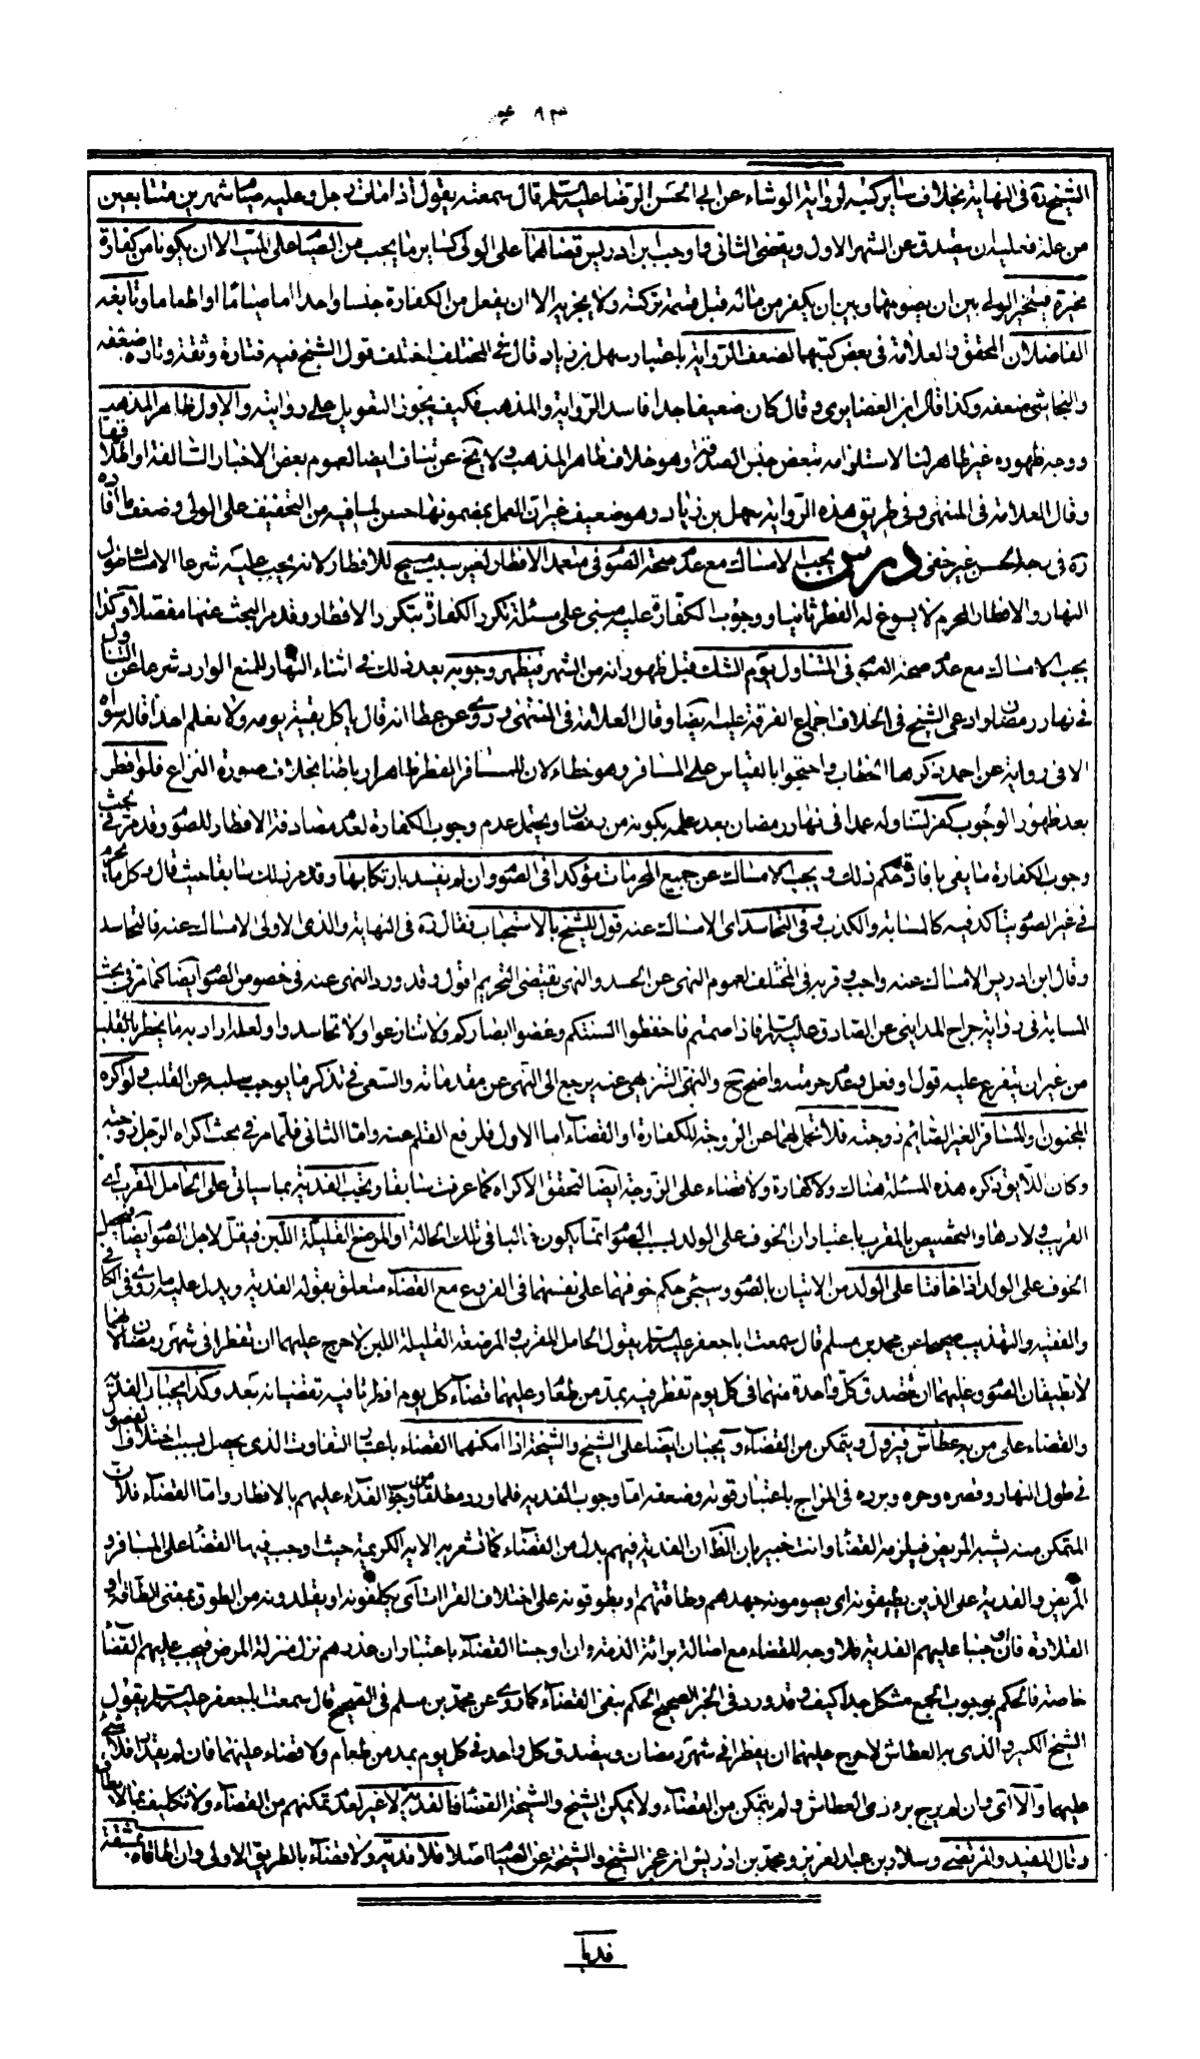 ٩٣
الشيخ ره في النهاية بخلاف سائر كتبه لرواية الوشاء عن ابي الحسن الرضا عليه السلم قال سمعته يقول اذا مات رجل وعليه صيام شهرين متتابعين
من علة فعليه ان يتصدق عن الشهر الاول ويقضى الثاني واوجب ابن ادريس قضائهما على الولي كساير ما يجب من الصيام على الميت الا ان يكونا من كفارة
مخيرة فيتخير الولي بين ان يصومهما وبين ان يكفر من ماله قبل قسمة تركته ولا يجزيه الا ان يفعل من الكفارة جنسا واحدا اما صياما او اطعاما وتابعه
الفاضلان المحقق والعلامة في بعض كتبهما لضعف الرواية باعتبار سهل بن زياد قال في المختلف اختلف قول الشيخ فيه فتارة وثقه وتارة ضعفه
والنجاشي ضعفه وكذا قال ابن الغضايرى وقال كان ضعيفا جدا فاسد الرواية والمذهب فكيف يجوز التعويل على روايته والاول ظاهر المذهب
ووجه ظهوره غير ظاهر لنا لاستلزامه تبعض جنس الصدقة وهو خلاف ظاهر المذهب ولا يخ عن تناف ايضا لعموم بعض الاخبار السالفة او اطلاقها
وقال العلامة في المنتهى وفي طريق هذه الرواية سهل بن زياد وهو ضعيف غير ان العمل بمضمونها حسن لما فيه من التخفيف على الولي وضعف ما افاده
ره في وجه الحسن غير خفى درس يجب الامساك مع عدم صحة الصوم في متعمد الافطار لغير سبب مبيح للافطار لانه يجب عليه شرعا الامساك طول
النهار والافطار المحرم لا يسوغ له الفطر ثانيا ووجوب الكفارة عليه مبنى على مسئلة تكرر الكفارة بتكرر الافطار وقد مر البحث عنهما مفصلا وكذا
يجب الامساك مع عدم صحة الصوم في المتناول يوم الشك قبل ظهور انه من الشهر فيظهر وجوبه بعد ذلك في اثناء النهار للمنع الوارد شرعا عن التناول
في نهار رمضان وادعى الشيخ في الخلاف اجماع الفرقة عليه ايضا وقال العلامة في المنتهى وروى عن عطا انه قال ياكل بقية يومه ولا نعلم احدا قاله سواه
الا في رواية عن احمد ذكرها ابو الخطاب واحتجوا بالقياس على المسافر وهو خطاء لان للمسافر الفطر ظاهرا وباطنا بخلاف صورة النزاع فلو افطر
بعد ظهور الوجوب كفر لتناوله عمدا في نهار رمضان بعد علمه بكونه من رمضان ويحتمل عدم وجوب الكفارة لعدم مصادفة الافطار للصوم وقد مر في بحث
وجوب الكفارة ما يفى بافادة حكم ذلك ويجب الامساك عن جميع المحرمات مؤكدا في الصوم وان لم يفسد بارتكابها وقد مر ذلك سابقا حيث قال وكل ما يحرم
في غير الصوم يتاكد فيه كالمسابة والكذب وفي التحاسد اى الامساك عنه قول للشيخ بالاستحباب فقال ره في النهاية والذى الاولى الامساك عنه فالتحاسد
وقال ابن ادريس الامساك عنه واجب وقربه في المختلف لعموم النهى عن الحسد والنهى يقتضى التحريم اقول وقد ورد النهى عنه في خصوص الصوم ايضا كما مر في بحث
المسابة في رواية جراح المدايني عن الصادق عليه السلم فاذا صمتم فاحفظوا السنتكم وغضوا ابصاركم ولا تنازعوا ولا تحاسدوا ولعله اراد به ما يخطر بالقلب
من غير ان يتفرع عليه قول او فعل وعدم حرمته واضح ح والنهى التنزيهي عنه يرجع الى النهى عن مقدماته والسعى في تذكر ما يوجب سلبه عن القلب ولو اكره
المجنون والمسافر الغير الصائم زوجته فلا تحمل لهما عن الزوجة للكفارة او القضاء اما الاول فلرفع القلم عنه واما الثاني فلما مر في بحث اكراه الرجل زوجته
وكان للايق ذكره هذه المسئلة هناك ولا كفارة ولا قضاء على الزوجة ايضا لتحقق الاكراه كما عرفت سابقا وتجب الفدية بما سياتى على الحامل المقرب اى
القريب ولادها والتخصيص بالمقرب باعتبار ان الخوف على الولد بسبب الصوم انما يكون غالبا في تلك الحالة او المرضع القليلة اللبن فيقل لاجل الصوم ايضا فيحصل
الخوف على الولد اذا خافتا على الولد من الاتيان بالصوم وسيجئ حكم خوفهما على نفسهما في الفروع مع القضاء متعلق بقوله الفدية ويدل عليه ما روى في الكافى
والفقيه والتهذيب صحيحا عن محمد بن مسلم قال سمعت ابا جعفر عليه السلم يقول الحامل المقرب والمرضعة القليلة اللبن لا حرج عليهما ان تفطرا في شهر رمضان لانهما
لا تطيقان الصوم وعليهما ان تتصدق كل واحدة منهما في كل يوم تفطر فيه بمد من طعام وعليهما قضاء كل يوم افطرتا فيه تقضيانه بعد وكذا يجبان الفدية
والقضاء على من به عطاش فيزول ويتمكن من القضاء ويجبان ايضا على الشيخ والشيخة اذا امكنهما القضاء باعتبار التفاوت الذى يحصل بسبب اختلاف الفصول
في طول النهار وقصره وحره وبرده في المزاج باعتبار قوته وضعفه اما وجوب الفدية فلما ورد مطلقا من وجوب الفداء عليهم بالافطار واما القضاء فلان
المتمكن منه يشبه المريض فيلزمه القضاء وانت خبير بان الظ ان الفدية فيهم بدل من القضاء كما تشعر به الاية الكريمة حيث اوجب فيها القضاء على المسافر و
المريض والفدية على الذين يطيقونه اى يصومونه جهدهم وطاقتهم او يطوقونه على اختلاف القراات اى يكلفونه او يقلدونه من الطوق بمعنى الطاقة او
القلادة فان اوجبنا عليهم الفدية فلا وجه للقضاء مع اصالة برائة الذمة وان اوجبنا القضاء باعتبار ان عذرهم نزل منزلة المرض فيجب عليهم القضاء
خاصة فالحكم بوجوب الجمع مشكل جدا كيف وقد ورد في الخبر الصحيح الحكم بنفى القضاء كما روى عن محمد بن مسلم في الصحيح قال سمعت ابا جعفر عليه السلم يقول
الشيخ الكبير والذى به العطاش لا حرج عليهما ان يفطرا في شهر رمضان ويتصدق كل واحد في كل يوم بمد من طعام ولا قضاء عليهما فان لم يقدرا فلا شئ
عليهما والا اى وان لم يرج برؤ ذى العطاش ولم يتمكن من القضاء ولا يمكن الشيخ والشيخة القضاء فالفدية لا غير لعدم تمكنهم من القضاء ولا تكليف بما لا يطاق
وقال المفيد والمرتضى وسلار بن عبد العزيز ومحمد بن ادريس ان عجز الشيخ والشيخة عن الصيام اصلا فلا فدية ولا قضاء بالطريق الاولى وان اطاقاه بمشقة
فديا